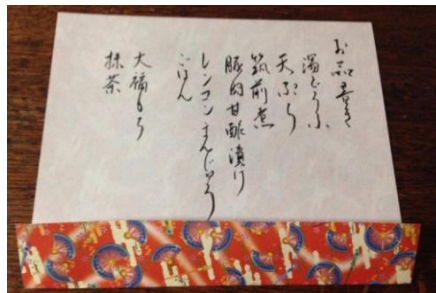 お品書き
湯どうふ
天ぷら
筑前煮
豚肉甘酢漬け
レンコンまんじゅう
ごはん
大福もち
抹茶